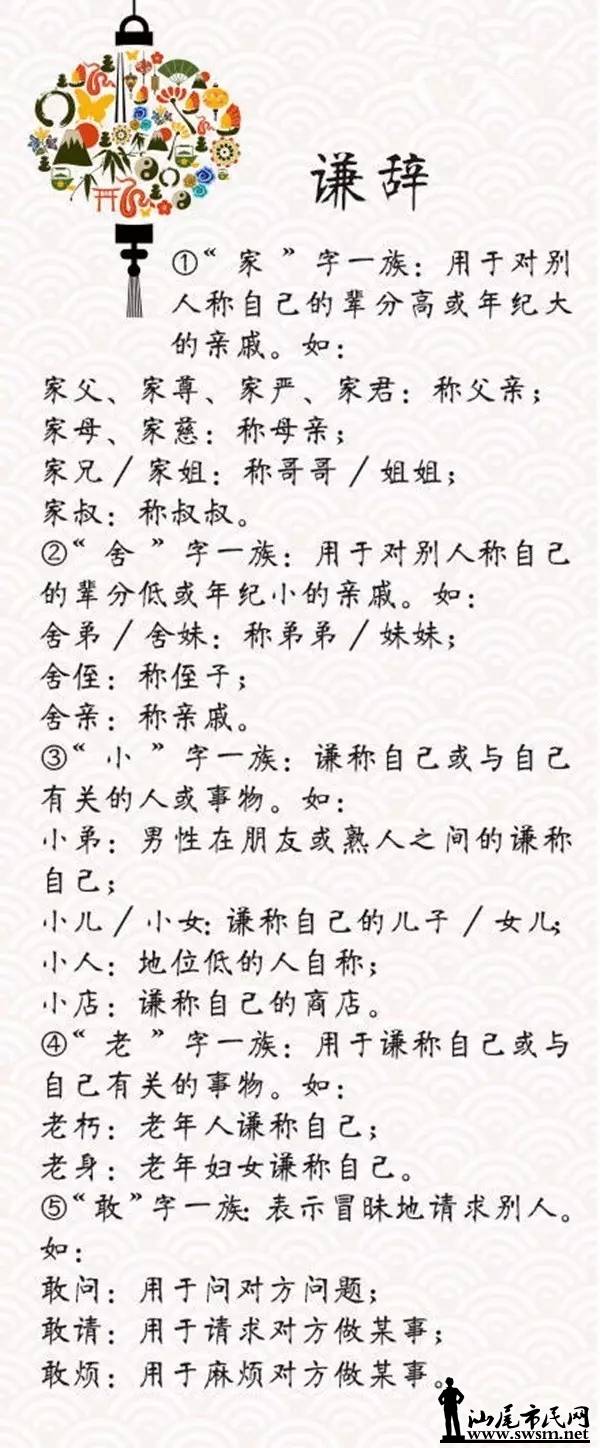 谦辞
①“家”字一族：用于对别
人称自己的辈分高或年纪大
的亲戚。如：
家父、家尊、家严、家君：称父亲；
家母、家慈：称母亲；
家兄/家姐：称哥哥/姐姐；
家叔：称叔叔。
②“舍”字一族：用于对别人称自己
的辈分低或年纪小的亲戚。如：
舍弟/舍妹：称弟弟/妹妹；
舍侄：称侄子；
舍亲：称亲戚。
③“小”字一族：谦称自己或与自己
有关的人或事物。如：
小弟：男性在朋友或熟人之间的谦称
自己；
小儿/小女：谦称自己的儿子/女儿；
小人：地位低的人自称；
小店：谦称自己的商店。
④“老”字一族：用于谦称自己或与
自己有关的事物。如：
老朽：老年人谦称自己；
老身：老年妇女谦称自己。
⑤“敢”字一族：表示冒昧地请求别人。
如：
敢问：用于问对方问题；
敢请：用于请求对方做某事；
敢烦：用于麻烦对方做某事。
汕尾市民网
www.swsm.net